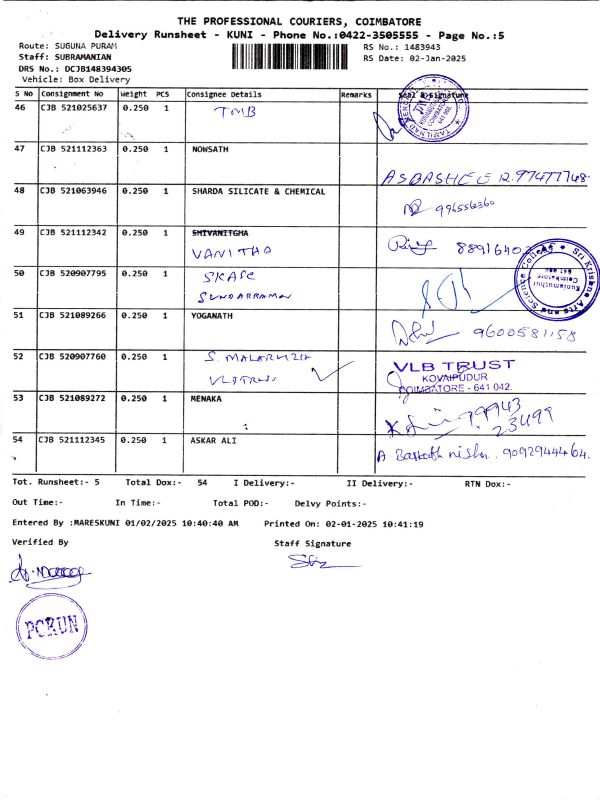 THE PROFESSIONAL COURIERS, COIMBATORE
Delivery Runsheet - KUNI - Phone No.:0422-3505555 - Page No.:5
Route: SUGUNA PURAM
RS No.: 1483943
Staff: SUBRAMANIAN
RS Date: 02-Jan-2025
DRS No.: DCJB148394305
Vehicle: Box Delivery
S No Consignment No Weight PCS Consignee Details Remarks Seal & Signature
46 CJB 521025637 0.250 1 TMB
47 CJB 521112363 0.250 1 NOWSATH
48 CJB 521063946 0.250 1 SHARDA SILICATE & CHEMICAL
49 CJB 521112342 0.250 1 SHIVANITGHA
VANITHA
50 CJB 520907795 0.250 1 SKASC
SUNDARRAMAN
Sri Krishna Arts and Science College
Kuniamuthur
Coimbatore
51 CJB 521089266 0.250 1 YOGANATH 9600581158
52 CJB 520907760 0.250 1
VLB TRUST
KOVAIPUDUR
COIMBATORE - 641 042.
53 CJB 521089272 0.250 1 MENAKA 79943
23499
54 CJB 521112345 0.250 1 ASKAR ALI 9092944464.
Tot. Runsheet:- 5 Total Dox:- 54 I Delivery:- II Delivery:- RTN Dox:-
Out Time:- In Time:- Total POD:- Delvy Points:-
Entered By :MARESKUNI 01/02/2025 10:40:40 AM Printed On: 02-01-2025 10:41:19
Verified By Staff Signature
PCKUN